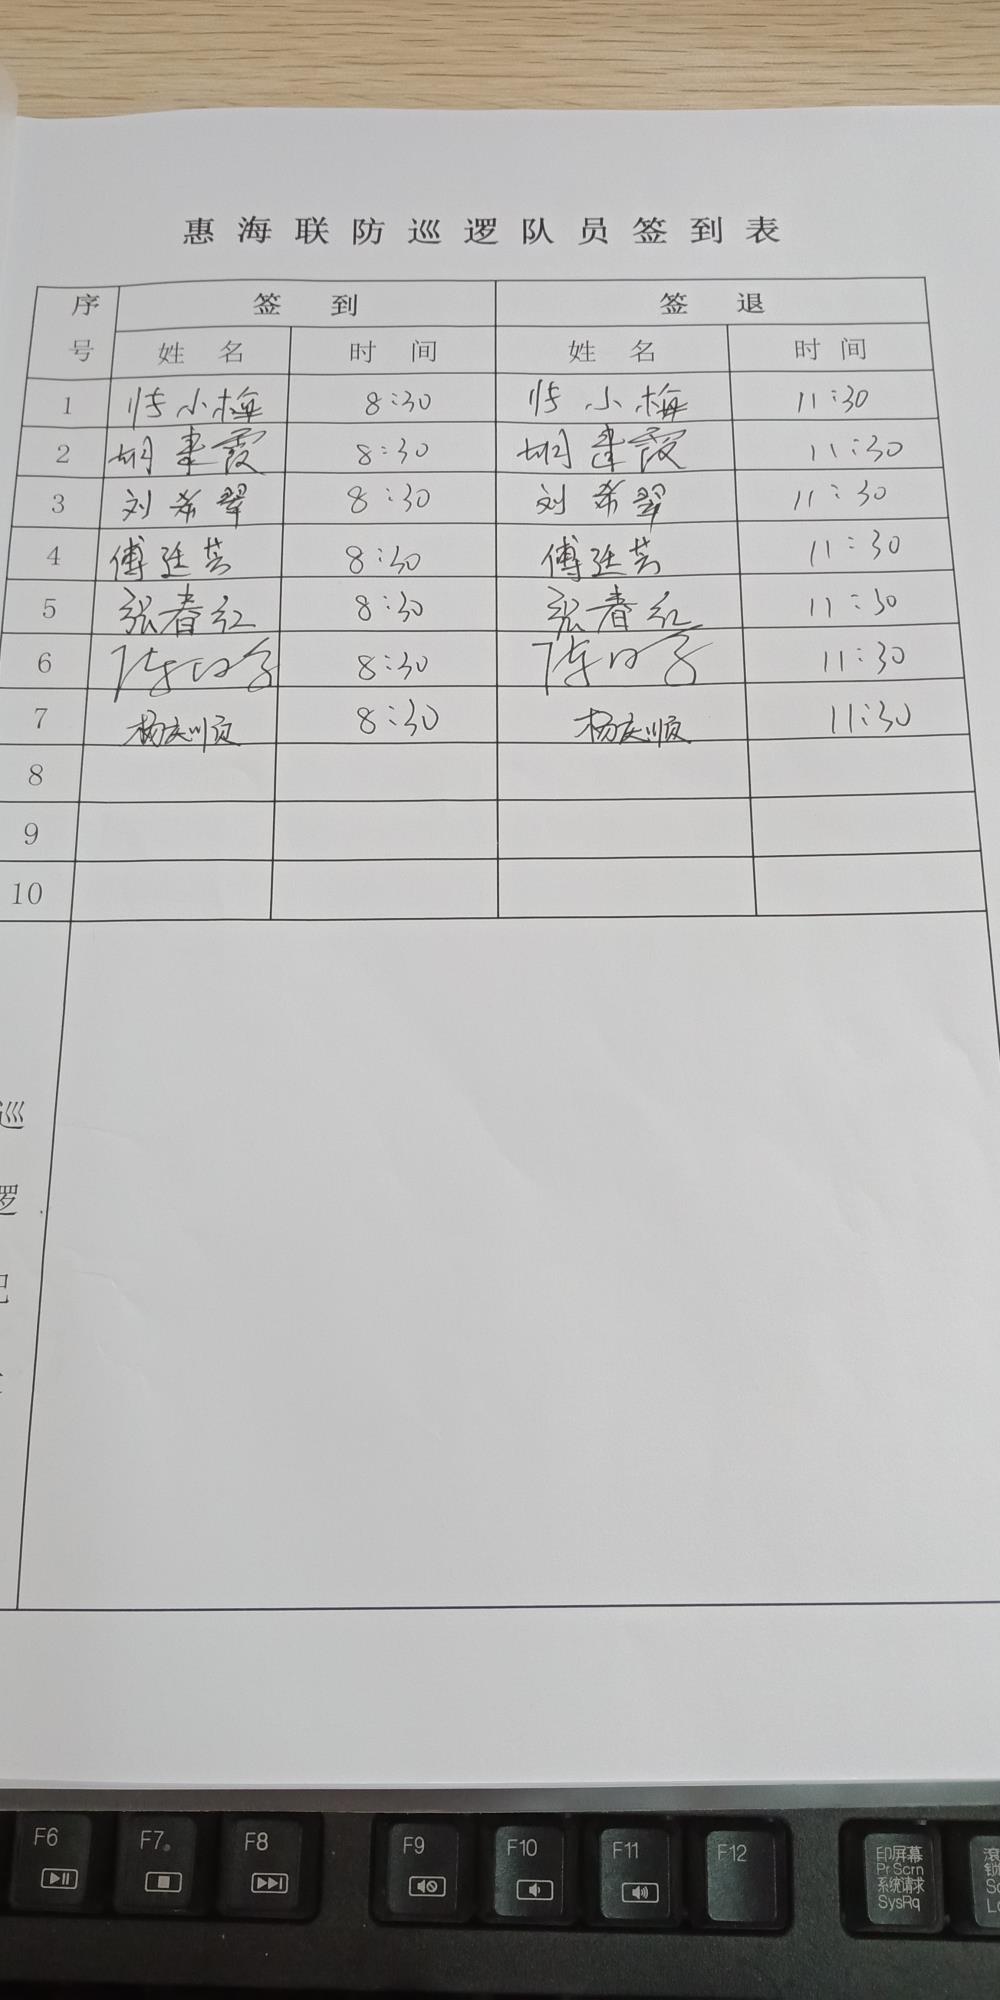 惠海联防巡逻队员签到表
序号 签到 签退
姓名 时间 姓名 时间
1 小梅 8:30 小梅 11:30
2 胡建霞 8:30 胡建霞 11:30
3 刘希翠 8:30 刘希翠 11:30
4 傅廷芸 8:30 傅廷芸 11:30
5 张春红 8:30 张春红 11:30
6 陈 8:30 陈 11:30
7 杨庆顺 8:30 杨庆顺 11:30
8
9
10
巡
逻
记
F6 F7 F8 F9 F10 F11 F12 印屏幕
PrScrn
系统请求
SysRq